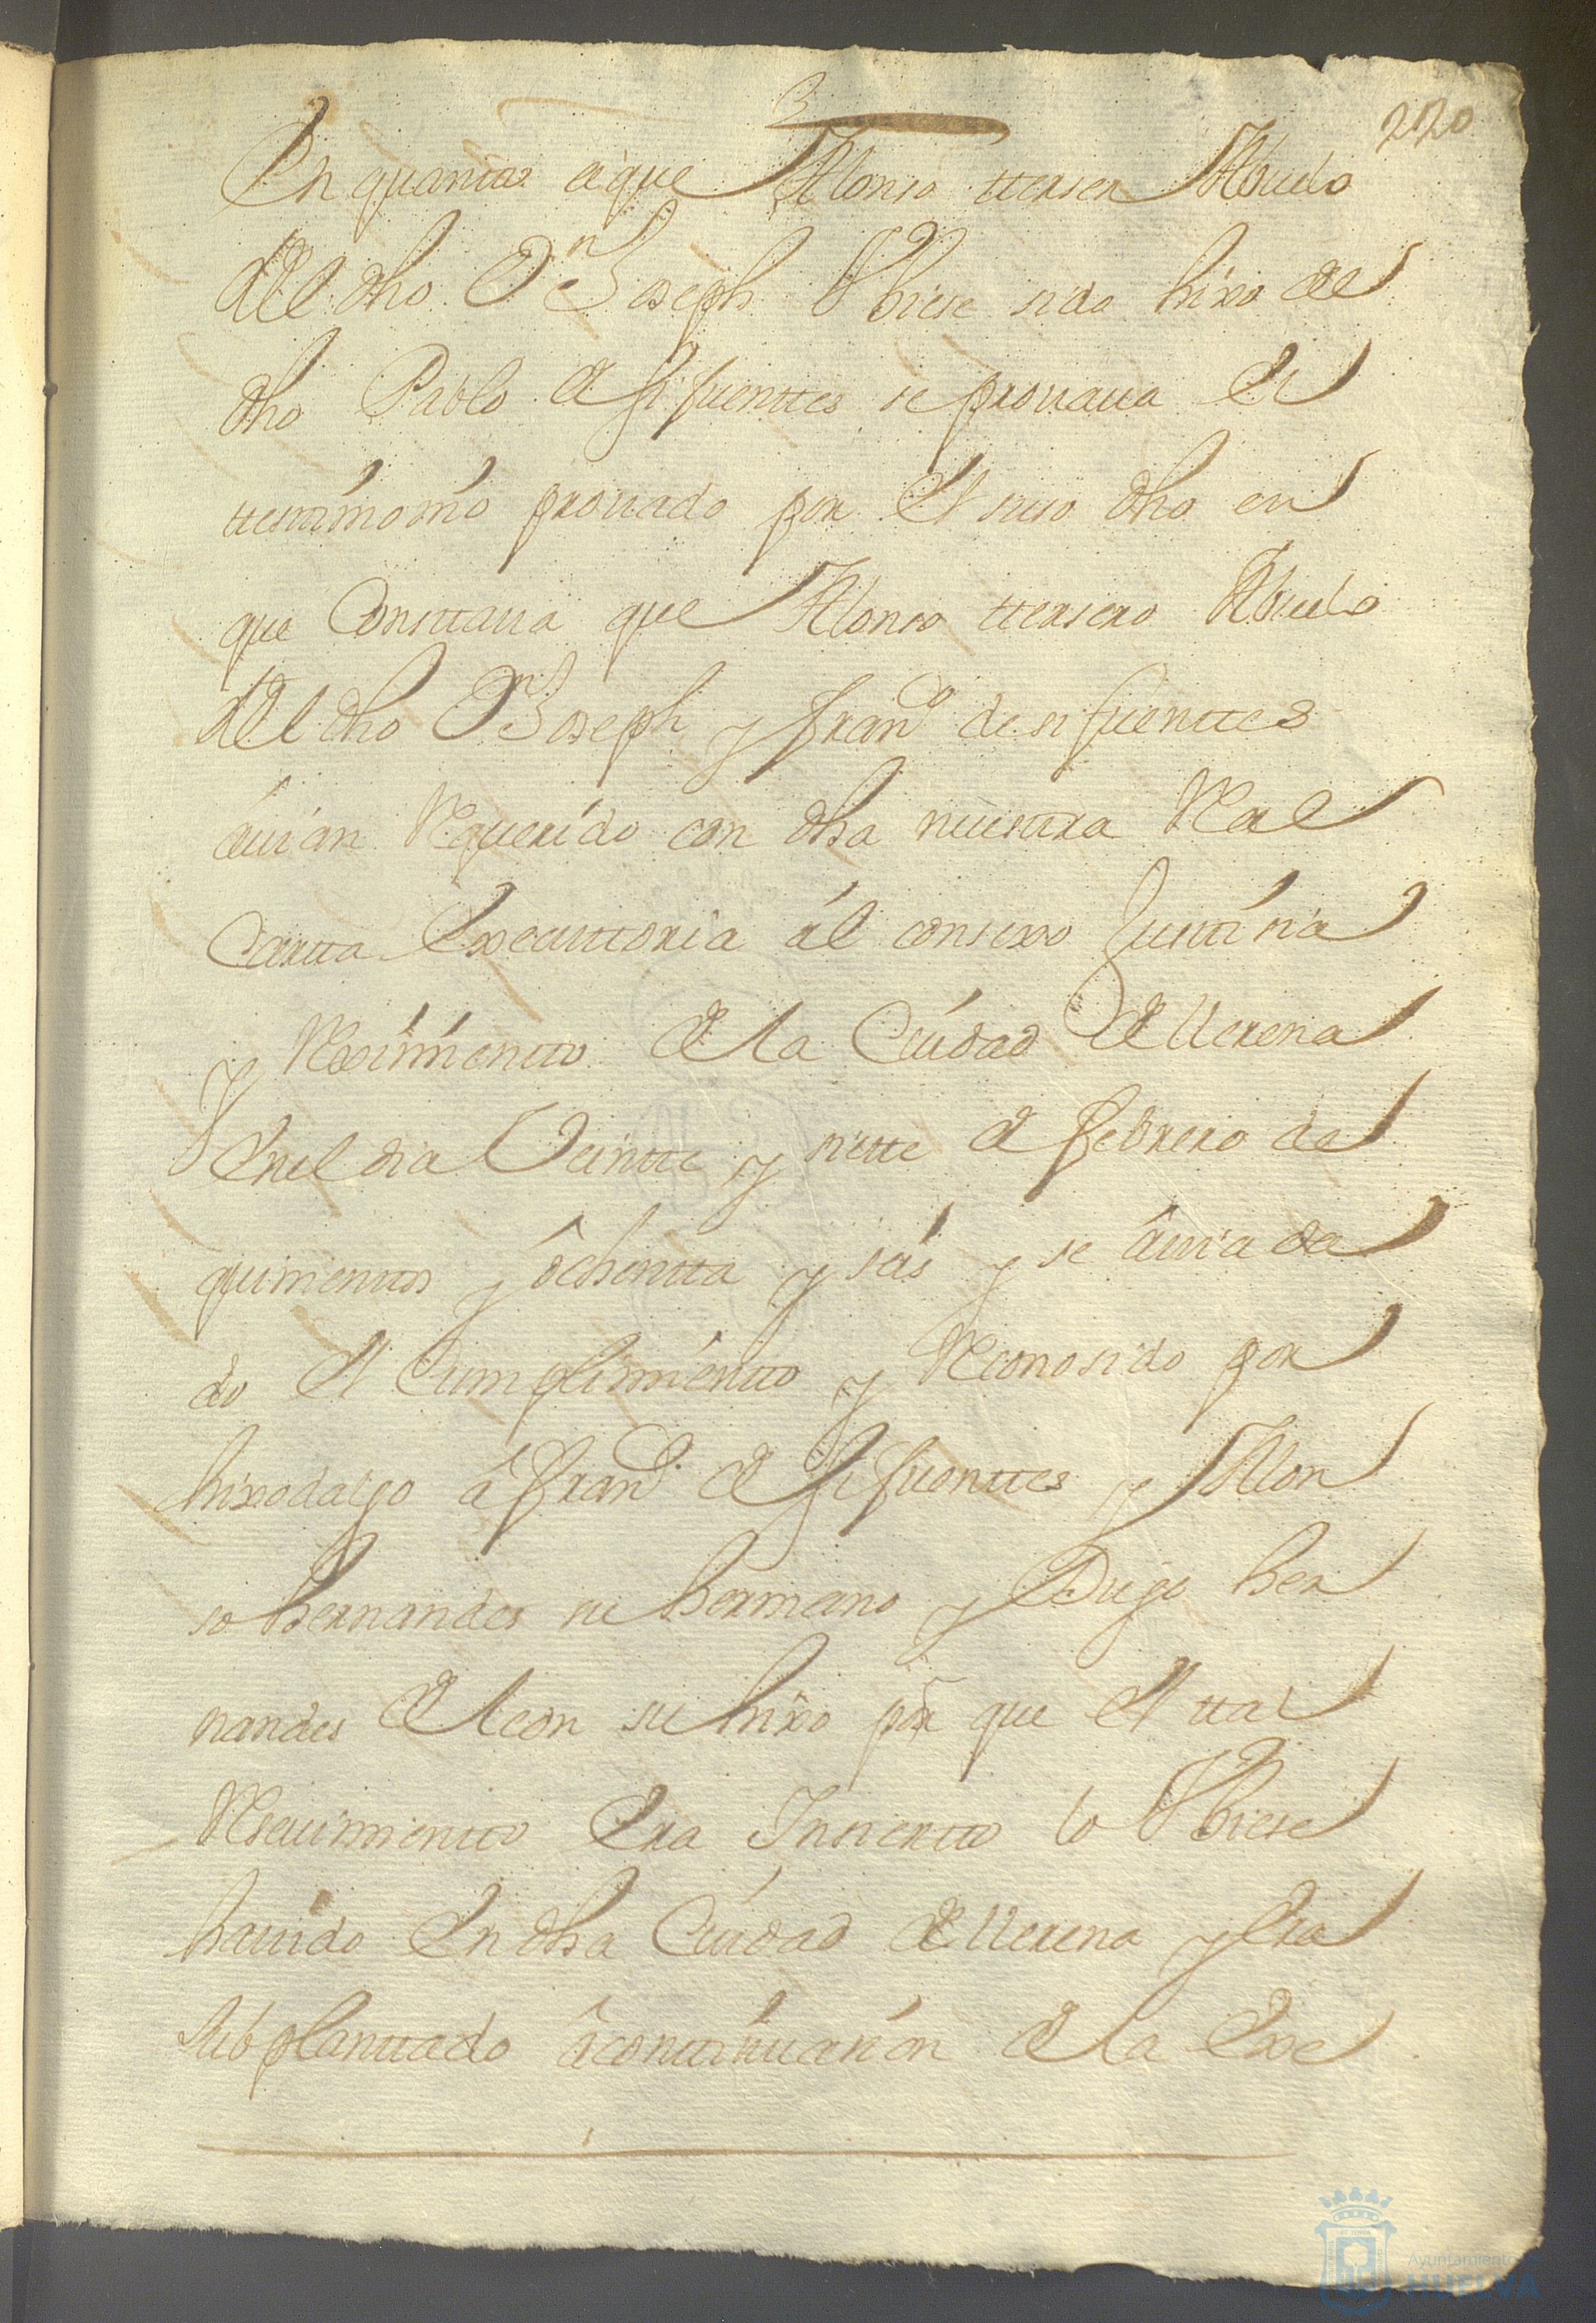 220
En quanto a que Alonso tterser Abuelo
del dho Dn Joseph Vbiese sido hixo de
dho Pablo de sifuenttes se prouaua de
ttestimonio prouado por el suso dho en
que Consttaua que Alonso ttersero Abuelo
del dho Dn Joseph y franco de sifuenttes
âuian Requerido con dha nuesttra Real
Cartta Executtoria âl consexo Justtisia
y Reximientto de la Ciudad de llerena
en el dia Veintte y siette de febrero de
quinienttos y ôchentta y seis y se âuia da
do el Cumplimientto y Reconosido por
hixodalgo â franco de sifuenttes y Alon
so hernandes su hermano y Diego her
nandes de leon su hixo por que el ttal
Reseuimientto era Insiertto lo Vbiese
hauido en dha Ciudad de llerena y era
subplanttado â conttinuasion de la exe
Ayuntamiento
HUELVA